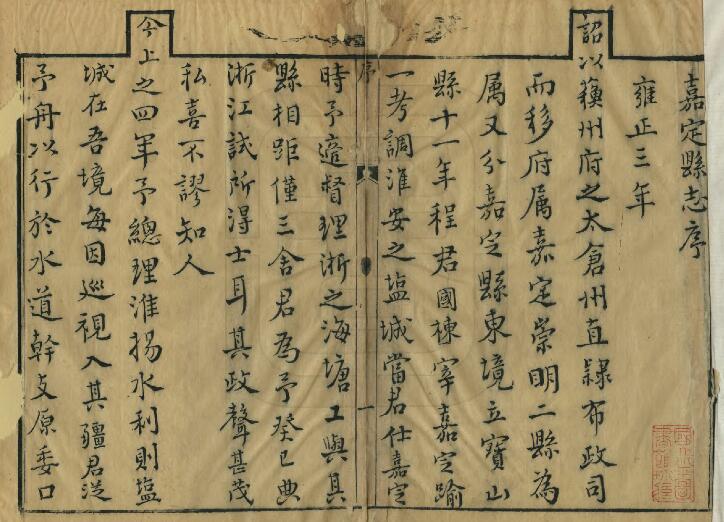 嘉定縣志序
雍正三年
詔以蘓州府之太倉州直隸布政司
而移府属嘉定崇明二縣為
属又分嘉定縣東境立寶山
縣十一年程君國棟宰嘉定踰
一考調淮安之塩城當君仕嘉定
序
一
時予適督理浙之海塘工與其
縣相距僅三舍君為予癸巳典
浙江試所得士耳其政聲甚茂
私喜不謬知人
今上之四年予總理淮揚水利則塩
城在吾境每因巡視入其疆君送
予舟以行於水道幹支原委口